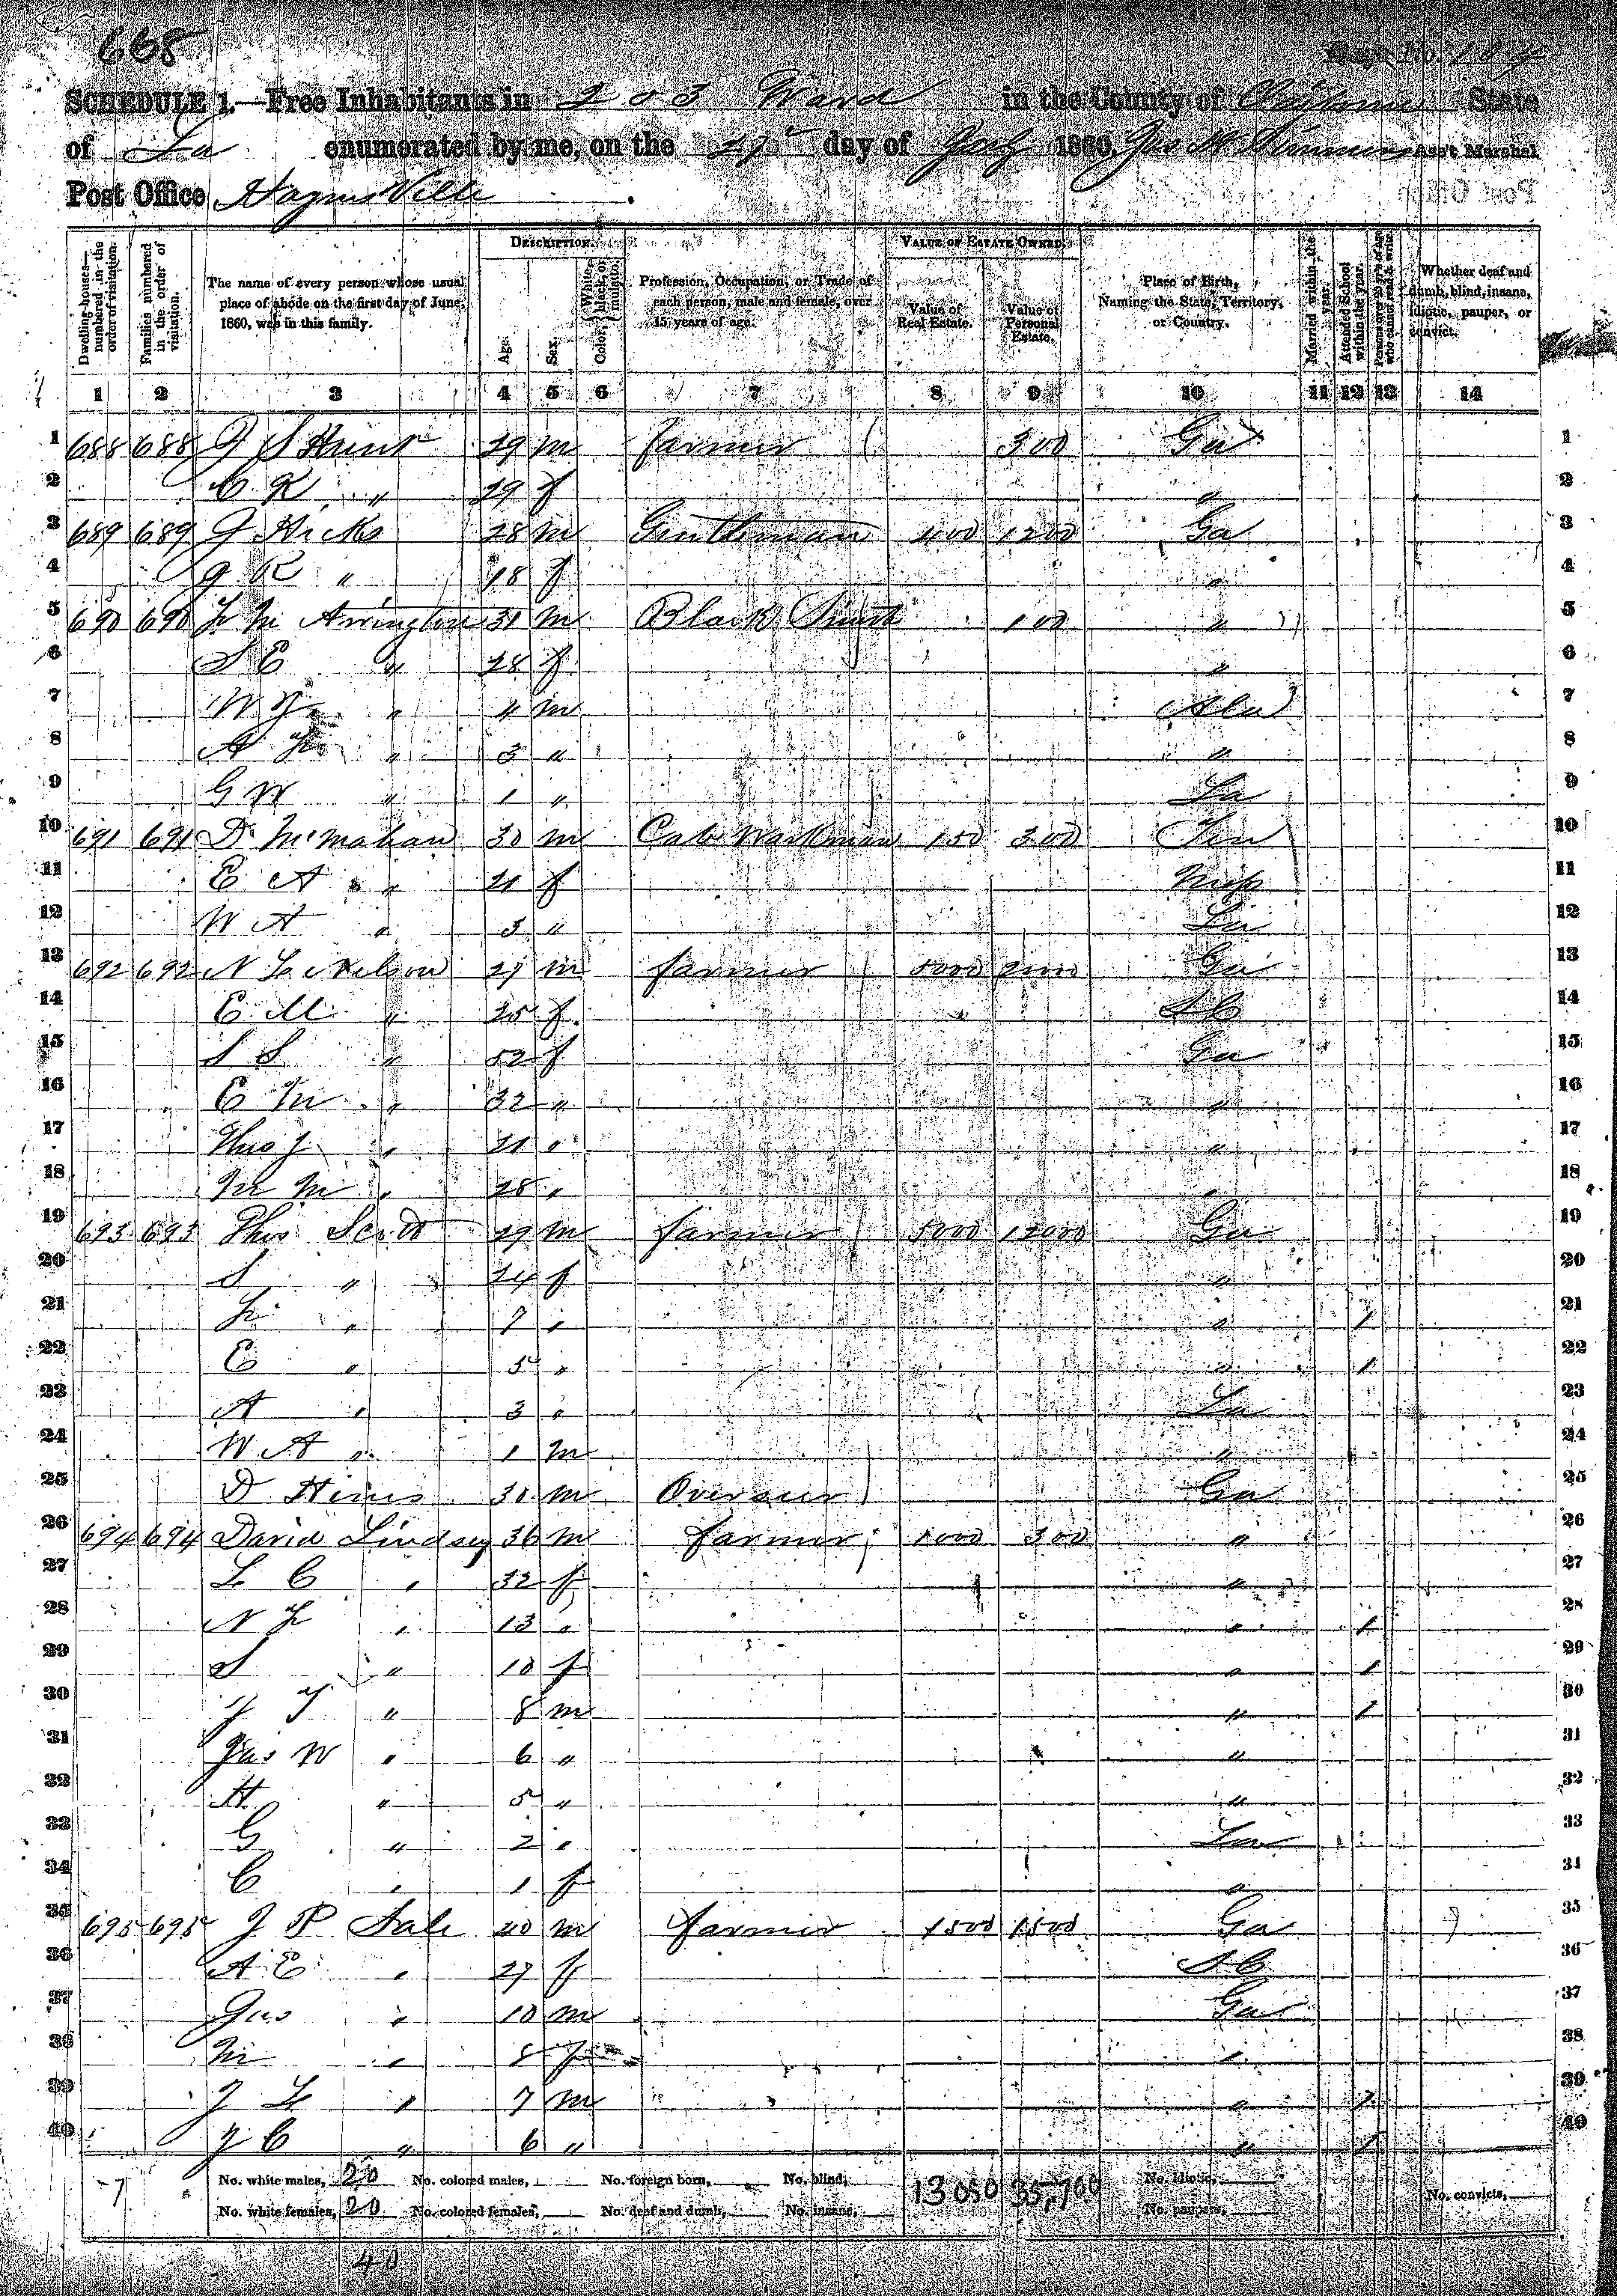 668
Page No. 104
SCHEDULE 1.—Free Inhabitants in 2 & 3 Ward in the County of Claiborne State
of La enumerated by me, on the 27 day of July 1860. Ass't Marshal
Post Office
Dwelling-houses—numbered in the order of visitation.
Families numbered in the order of visitation.
The name of every person whose usual place of abode on the first day of June, 1860, was in this family.
DESCRIPTION.
Age.
Sex.
Color, White, black, or mulatto.
Profession, Occupation, or Trade of each person, male and female, over 15 years of age.
VALUE OF ESTATE OWNED.
Value of Real Estate.
Value of Personal Estate.
Place of Birth, Naming the State, Territory, or Country.
Married within the year.
Attended School within the year.
Persons over 20 y'rs of age who cannot read & write.
Whether deaf and dumb, blind, insane, idiotic, pauper, or convict.
1 2 3 4 5 6 7 8 9 10 11 12 13 14
1 688 688 J S Hunt 29 m farmer 300 Ga 1
2 C K " 29 f " 2
3 689 689 J Hicks 28 m Gentleman 400 1200 Ga 3
4 J R " 18 f " 4
5 690 690 Arrington 31 m Black Smith 100 " 5
6 S E " 28 f " 6
7 W J " 4 m Ala 7
8 A " 3 " " 8
9 G W " 1 " La 9
10 691 691 D McMahan 30 m Cab Workman 150 300 Ten 10
11 E A " 21 f Miss 11
12 W A " 3 " La 12
13 692 692 N L Nelson 27 m farmer 5000 Ga 13
14 E M " 25 f S C 14
15 S S " 52 f Ga 15
16 E M " 32 " " 16
17 " 21 " " 17
18 M M " 28 " " 18
19 693 693 Thos Scott 29 m farmer 5000 12000 Ga 19
20 S " 24 f " 20
21 " 7 " " 1 21
22 E " 5 " " 1 22
23 A " 3 " La 23
24 W A " 1 m " 24
25 D 30 m Overseer Ga 25
26 694 694 David Lindsey 36 m farmer 1000 300 " 26
27 L C " 32 f " 27
28 N " 13 " " 1 28
29 S " 10 f " 1 29
30 J " 8 m " 1 30
31 Jas W " 6 " " 31
32 H " 5 " " 32
33 G " 2 " La 33
34 C " 1 f " 34
35 695 695 J P Sale 40 m farmer 1500 1500 Ga 35
36 A E " 27 f S C 36
37 Jas " 10 m Ga 37
38 M " 8 f " 38
39 J L " 7 m " 1 39
40 J C " 6 " " 1 40
No. white males, 20 No. colored males, No. foreign born, No. blind, 13050 35,700 No. idiotic,
No. white females, 20 No. colored females, No. deaf and dumb, No. insane, No. paupers, No. convicts,
40